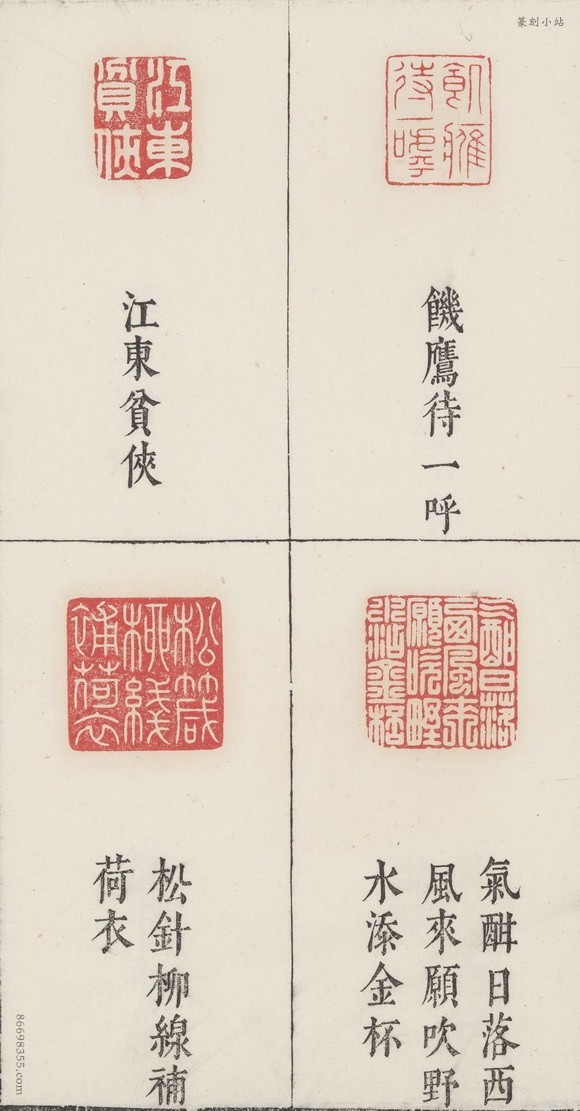 篆刻小站
飢鷹
待一嘑
饑鷹待一呼
江東
貧俠
江東貧俠
气酣日落
西風來
願吹野
水添金杯
氣酣日落西
風來願吹野
水添金杯
松箴
柳綫
補荷衣
松針柳線補
荷衣
86698355.com